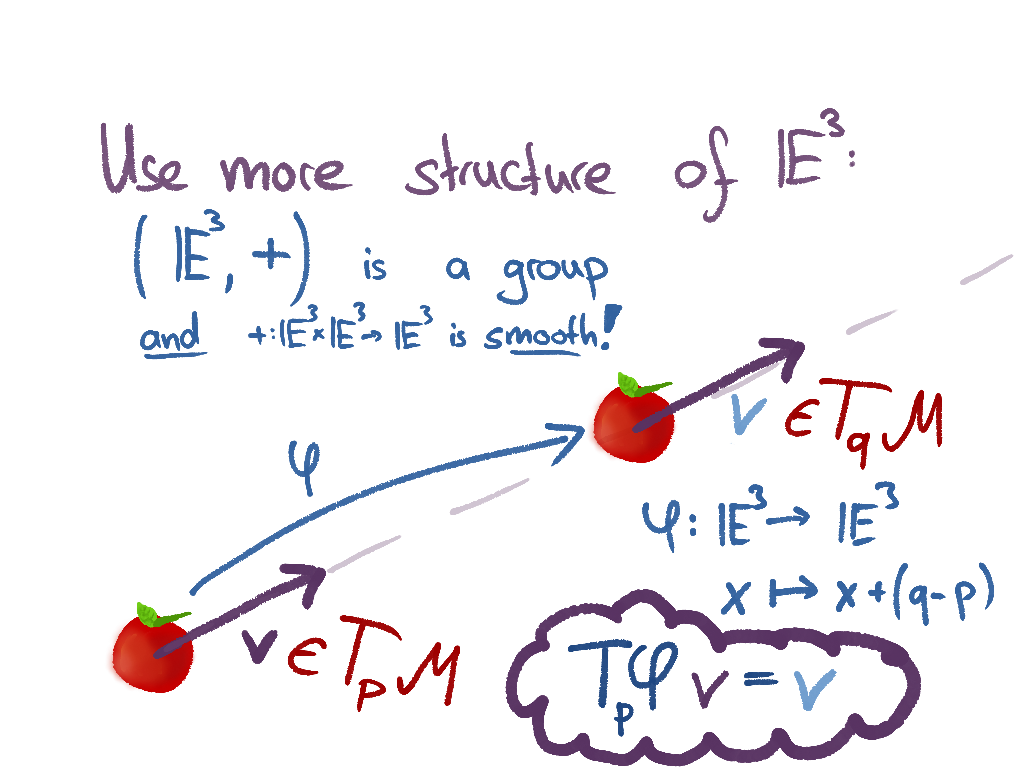 Use more structure of 𝔼³:
(𝔼³, +) is a group
and +: 𝔼³×𝔼³→ 𝔼³ is smooth!
v ∈ T_q M
φ
φ: 𝔼³ → 𝔼³
x ↦ x+(q-p)
v ∈ T_p M
T_p φ v = v